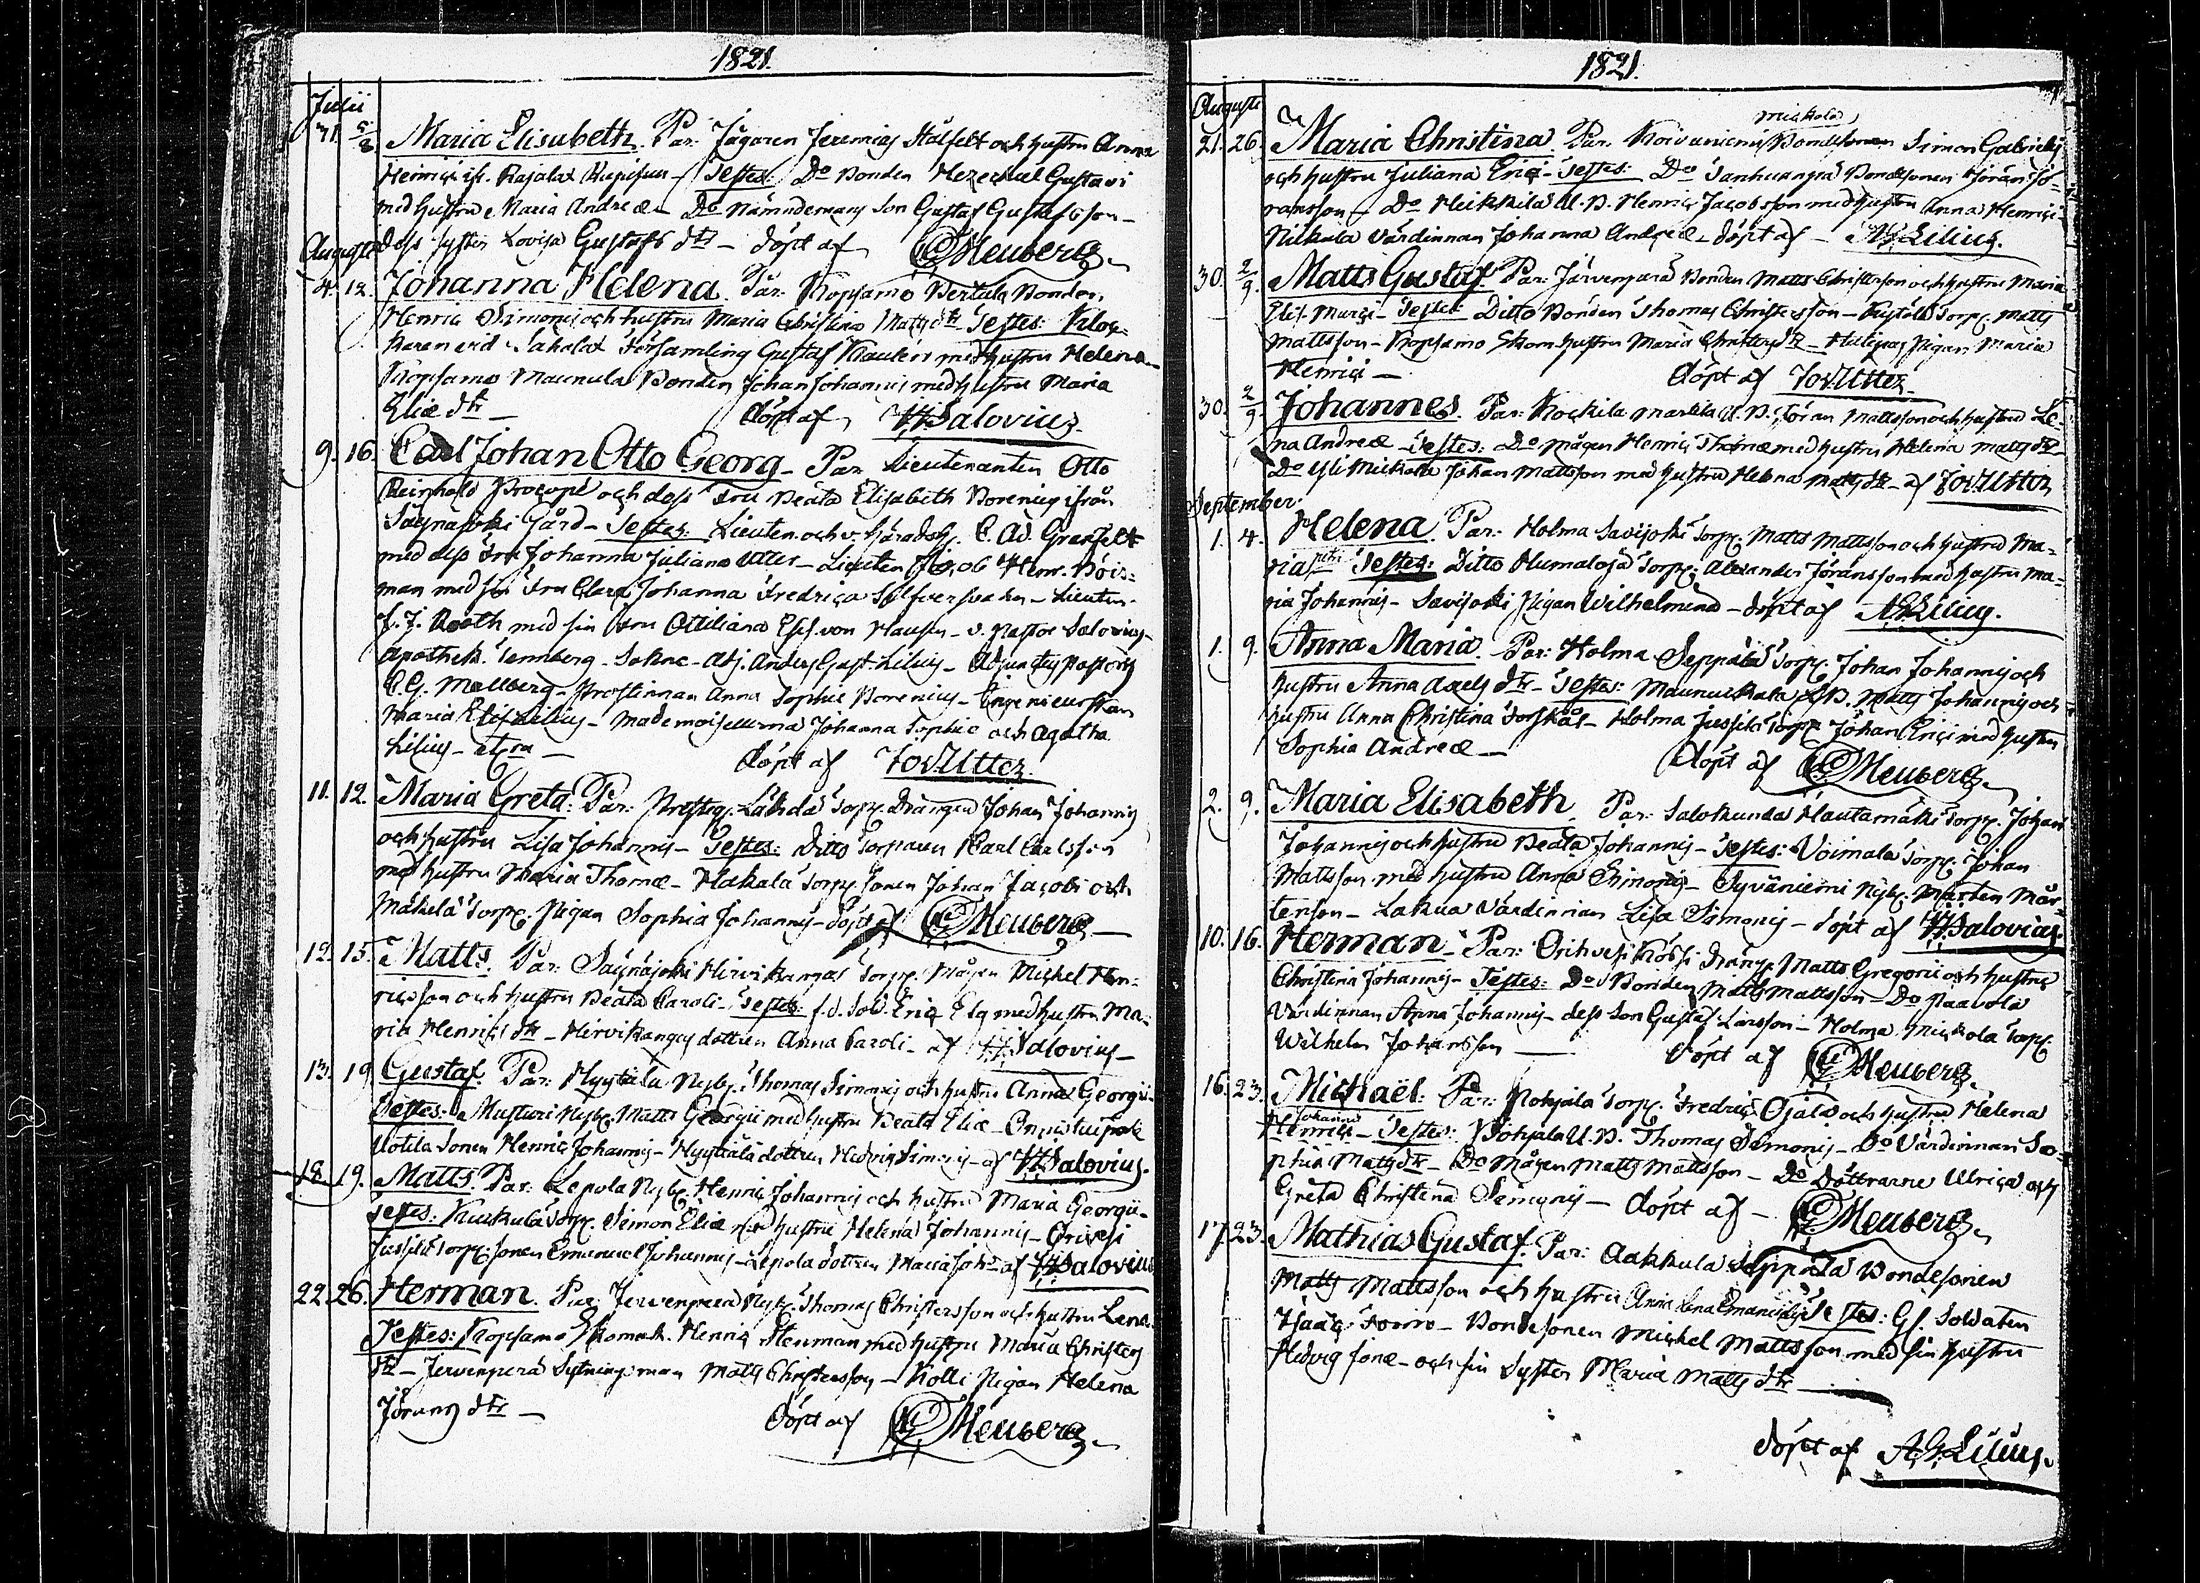 1821.
Julii
31. 5/8 Maria Elisabeth. Par: Jägaren Jeremias Stålfelt och hustru Anna
Henrici ifr. Rajalax - Testes: Do Bonden Hezeckiel Gustavi
med hustru Maria Andreæ - Do Nämndemans Son Gustaf Gustafsson -
dess syster Lovisa Gustafs dtr - döpt af Heuberg.
Augusti
4. 12. Johanna Helena. Par: Kopsamo Bertula Bonden
Henric Simonis och hustru Maria Christina Matts dtr Testes: Kloc-
karen vid Sahalax Församling Gustaf med hustru Helena
Kopsamo Maunula Bonden Johan Johannis med hustru Maria
Eliæ dtr - döpt af Salovius.
9. 16. Carl Johan Otto Georg - Par. Lieutenanten Otto
Reinhold Procopé och dess Fru Beata Elisabeth Borenius ifrån
Säynäjoki Gård - Testes: Lieuten. och v. Häradsh. C. Ad. Granfelt
med dess Fru Johanna Juliana Utter - Lieuten. Henr. Bois-
man med sin Fru Clara Johanna Fredrica Silfversvahn - Lieuten.
F. J. Rooth med sin Fru Ottiliana Elis. von Hausen - v. Pastor Salovius -
Apothek. Tennberg - Adj. Anders Gust. Lilius - Adjunctus Pastoris
C. G. Mellberg - Prostinnan Anna Sophie Borenius - Ingenieurskan
Maria Elis. Lilius - Mademoisellerna Johanna Sophie och Agatha
Lilius - döpt af Utter.
11. 12. Maria Greta: Par: Prestg. Lähdä Torp. Drängen Johan Johannis
och hustru Lisa Johannis - Testes: Ditto Torparen Karl Carlsson
med hustru Maria Thomæ - Hakala Torp. Sonen Johan Jacobi och
Mäkelä Torp. Pigan Sophia Johannis - döpt af Heuberg -
12. 15. Matts. Par: Säynäjoki Hirvikangas Torp. Mågen Mickel Hen-
ricsson och hustru Beata Caroli - Testes: f.d. Sold. Eric Elg med hustru Ma-
ria Henrics dtr - Hirvikangas dottren Anna Caroli - af Salovius -
13. 19. Gustaf. Par: Hyytiälä Nyb. Thomas Simonis och hustru Anna Georgii
Testes: Nyb. Matts Georgii med hustru Beata Eliæ -
Uotila Sonen Henric Johannis - Hyytiälä dottren Hedvig Simonis - af Salovius.
18. 19. Matts. Par: Lepola Nyb. Henric Johannis och hustru Maria Georgii -
Testes: Kuckula Torp. Simon Eliæ med hustru Helena Johannis - Orivesi
Jussila Torp. Sonen Emanuel Johannis - Lepola dottren Maria Joh. af Salovius
22. 26. Herman. Par: Jervenperä Nyb. Thomas Christersson och hustru Lena.
Testes: Kopsamo Skomak. Henric Stenman med hustru Maria Christers
dtr - Jervenperä Sytningsman Matts Christersson - Kolli Pigan Helena
Jörans dtr - döpt af Heuberg.
1821.
Augusti
Mickola
21. 26. Maria Christina. Par. Koivuniemi Bondesonen Simon Gabriels
och hustru Juliana Erici - Testes: Do Bondsonen Jöran Jö-
ransson - Do Heikkilä U.B. Henric Jacobsson med hustru Anna Henrici -
Mickala Värdinnan Johanna Andreæ - döpt af - A.G. Lilius.
30. 2/9. Matts Gustaf. Par: Järvenperä Bonden Matts Christersson och hustru Maria
Elis. Marci - Testes: Ditto Bonden Thomas Christersson - Torp. Matts
Mattsson - Kopsamo hustru Maria Christers dtr - Pigan Maria
Henrici - döpt af Utter
30. 2/9. Johannes. Par: Kockila Markila U.B. Jöran Mattsson och hustru Le-
na Andreæ - Testes: Do Mågen Henric Thomæ med hustru Helena Matts dtr
Do Yli Mickola Johan Mattsson med hustru Helena Matts dtr - af Utter
September.
1. 4. Helena. Par: Holma Savijoki Torp. Matts Mattsson och hustru Ma-
ria Testes: Ditto Humaloja Torp. Alexander Jöransson med hustru Ma-
ria Johannis - Savijoki Pigan Wilhelmina - döpt af A.G. Lilius.
1. 9. Anna Maria. Par: Holma Seppälä Torp. Johan Johannis och
hustru Anna Axels dtr - Testes: Maunuskala Matts Johannis och
hustru Anna Christina - Holma Jussila Torp. Johan Erici med hustru
Sophia Andreæ - döpt af Heuberg.
2. 9. Maria Elisabeth. Par: Salokunda Hautamäki Torp. Johan
Johannis och hustru Beata Johannis - Testes: Voimala Torp. Johan
Mattsson med hustru Anna Simonis - Syväniemi Nyb. Mårten Mår-
tensson - Lakua Värdinnan Lisa Simonis - döpt af Salovius.
10. 16. Herman - Par: Orihvesi Drängen Matts Gregorii och hustru
Christina Johannis - Testes: Do Bonden Matts Mattsson - Do Paavola
Värdinnan Anna Johannis - dess Son Gustaf Larsson - Holma Mickola Torp.
Wilhelm Johansson - döpt af Heuberg.
16. 23. Michaël: Par: Pohjala Torp. Fredric Ojala och hustru Helena
Johannis
Henrici - Testes: Pohjala U.B. Thomas Simonis - Do Värdinnan So-
phia Matts dtr - Do Mågen Matts Mattsson - Do Döttrarne Ulrica och
Greta Christina Simonis - döpt af - Heuberg.
17. 23. Mathias Gustaf. Par: Aakkula Seppälä Bondesonen
Matts Mattsson och hustru Anna Lena Emanuels Testes: Gl. Soldaten
Isaac - Bondesonen Mickel Mattsson med sin hustru
Hedvig Jonæ - och sin Syster Maria Matts dtr -
döpt af A.G. Lilius.